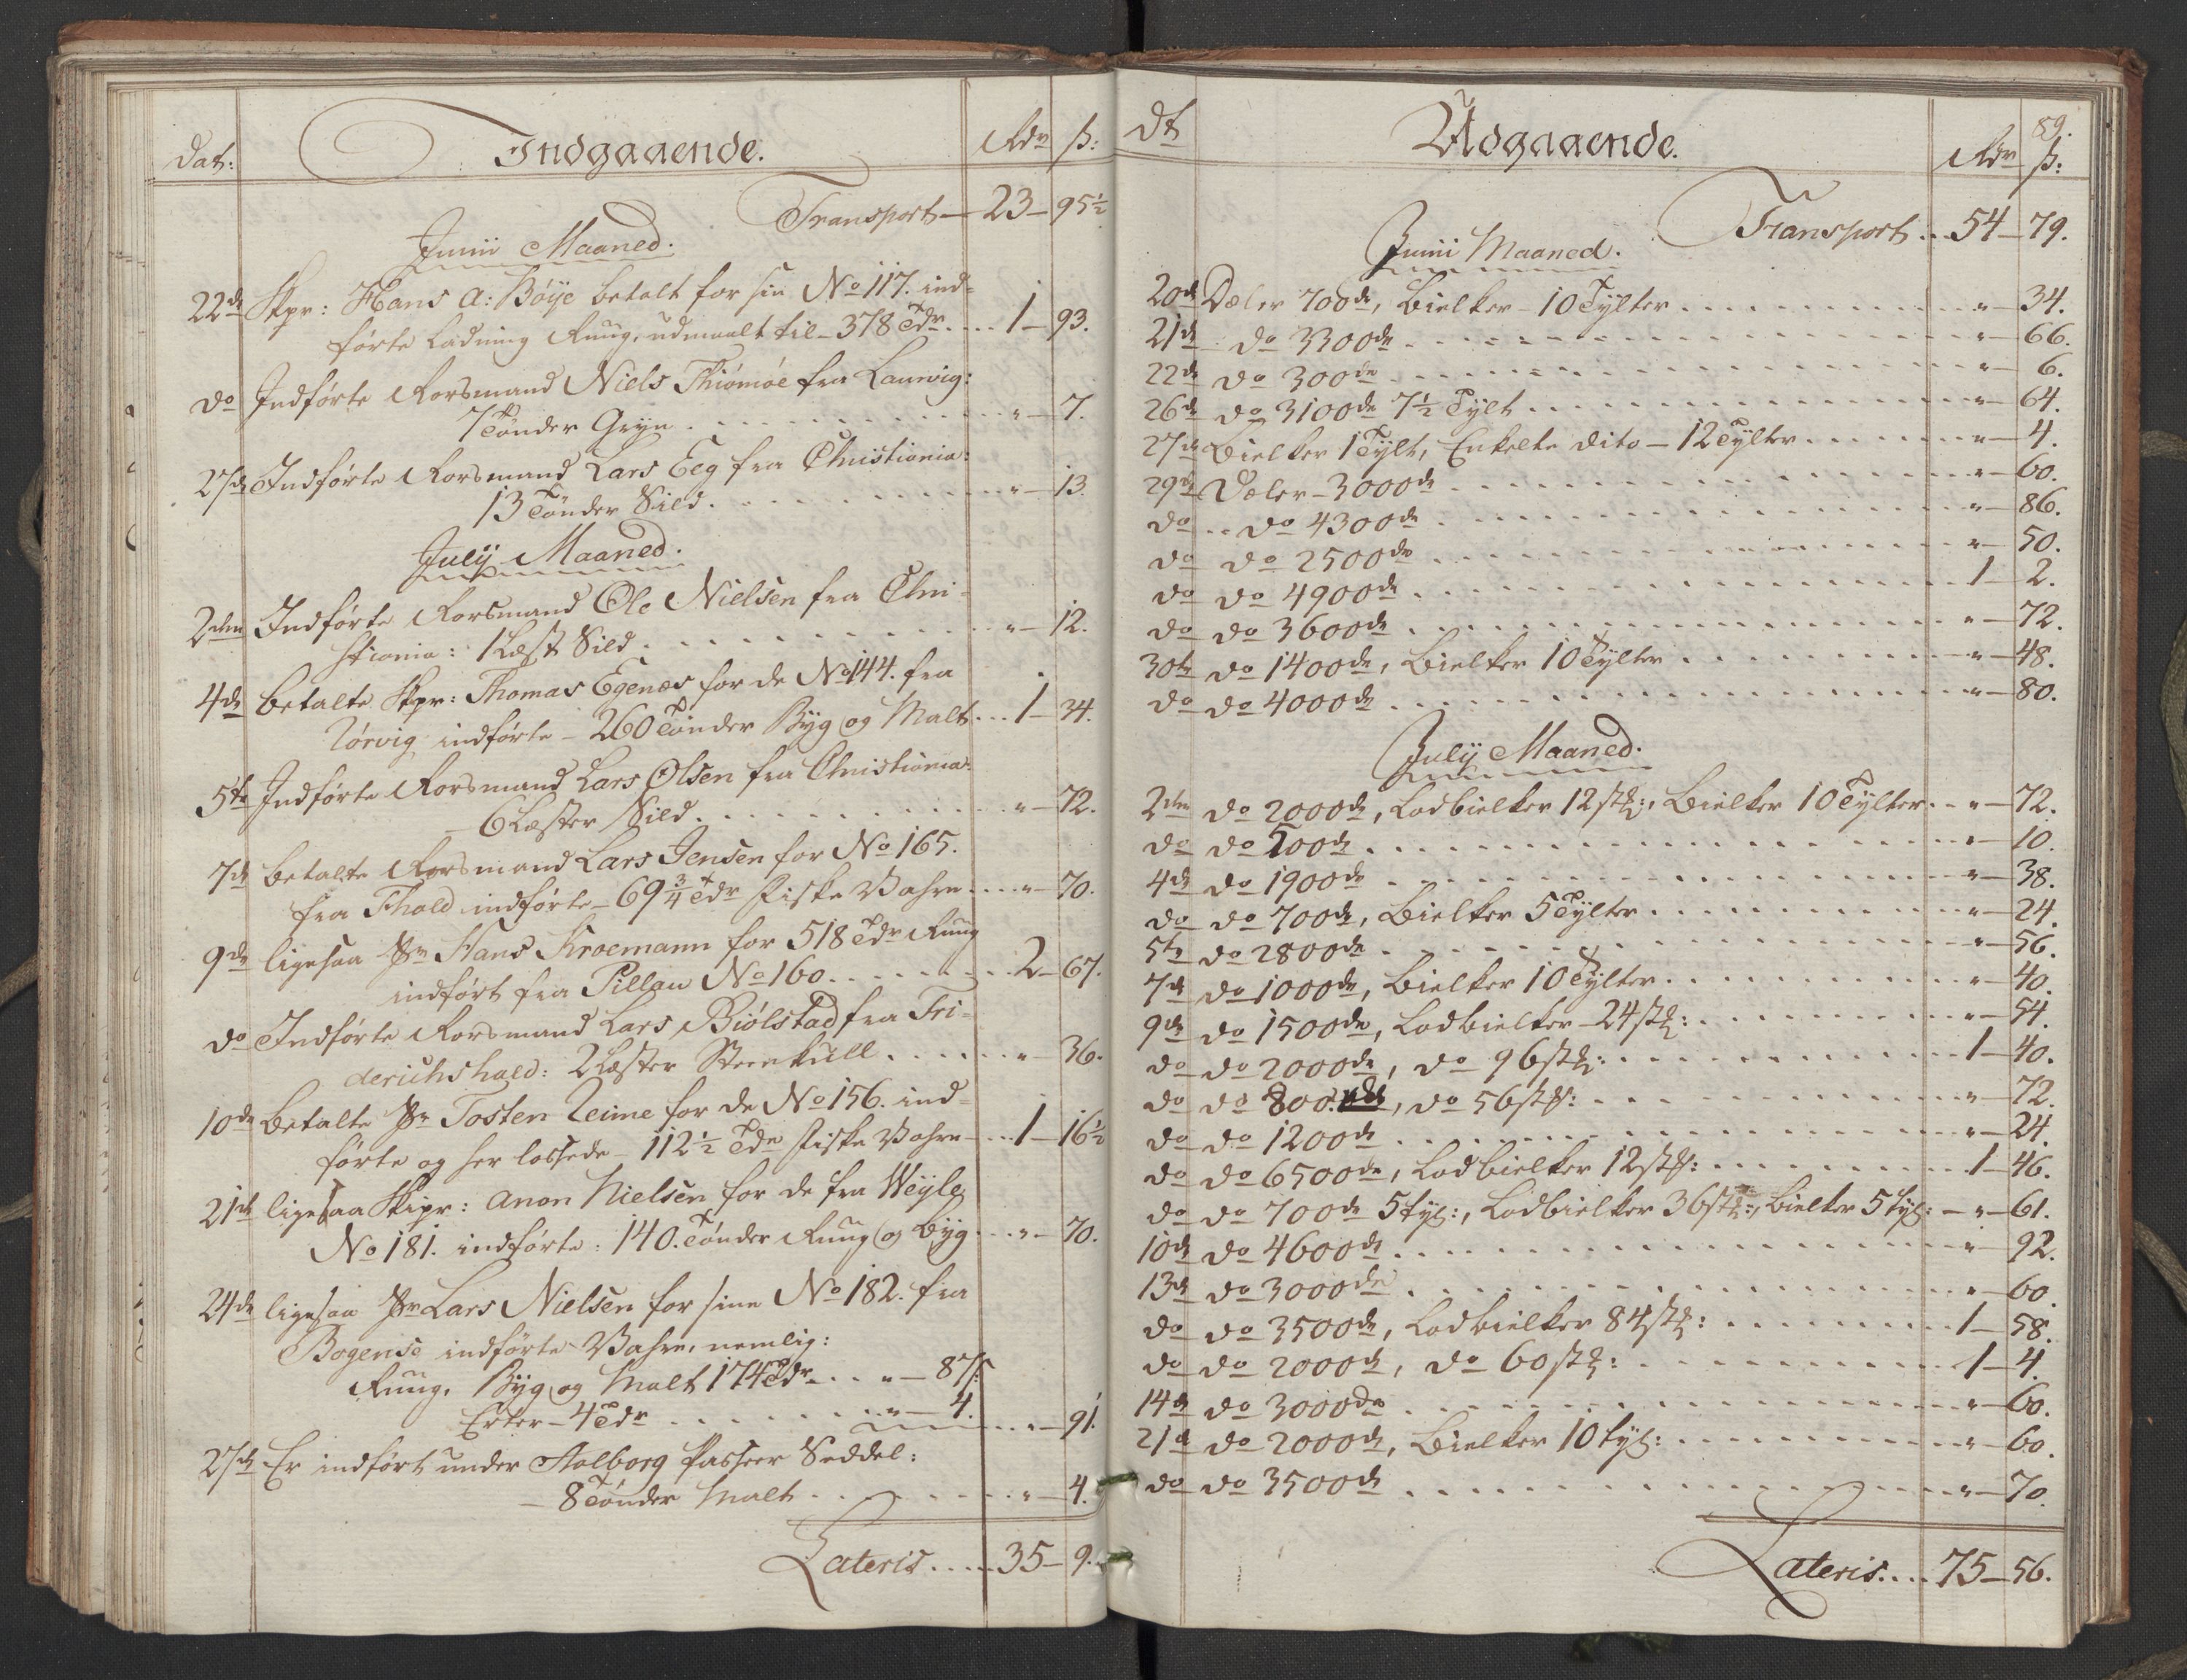 Dat: Indgaaende. Rdr ß:
Transport — 23 — 95½
Junii Maaned.
22de Skpr: Hans A: Böÿe betalt for sin No 117. ind-
förte Ladning Rug, udmaalt til - 378 Tdr. ... 1 — 93.
do Indförte Korsmand Niels Thiömöe fra Laurvig:
7 Tönder Grÿn . . . . . . . . . " — 7.
27de Indförte Korsmand Lars Eeg fra Christiania:
13 Tönder Sild . . . . . . . . . " — 13.
Julÿ Maaned.
2den Indförte Korsmand Ole Nielsen fra Chri-
stiania: 1 Læst Sild . . . . . . . . . " — 12.
4de betalte Skpr: Thomas Egenæs for de No 144. fra
Törvig indförte - 260 Tönder Bÿg og Malt ... 1 — 34.
5te Indförte Korsmand Lars Olsen fra Christiania:
6 Læster Sild . . . . . . . . . " — 72.
7de betalte Korsmand Lars Jensen for No 165.
fra Thold indförte - 69¾ Tdr Fiske Vahre .... " — 70.
9de ligesaa Sr Hans Kroemann for 518 Tdr Rug
indfört fra Pillau No 160 . . . . . . . 2 — 67.
do Indförte Korsmand Lars Biölstad fra Fri-
derichshald: 2 Læster Steenkull . . . . . . " — 36.
10de betalte Sr Tosten Reime for de No 156. ind-
förte og her lossede - 112½ Tdr Fiske Vahre - .. 1 — 16½
21de ligesaa Skipr: Anon Nielsen for de fra Weÿle
No 181. indförte: 140. Tönder Rug og Bÿg ... " — 70.
24de ligesaa Sr Lars Nielsen for sine No 182. fra
Bogense indförte Vahre, nemlig:
Rug, Bÿg og Malt 174 Tdr ... " — 87 ß:
Erter - 4 Tdr . . . . . . . " — 4. " — 91.
27de Er indfört under Aalborg Passeer Seddel:
— 8 Tönder Malt . . . . . . . . . " — 4.
Lateris .... 35 — 9.
89.
Dt Udgaaende. Rdr ß:
Transport .. 54 — 79.
Junii Maaned.
20de Dæler 700de, Bielker - 10 Tÿlter . . . . . . . . " — 34.
21de do 3300de . . . . . . . . " — 66.
22de do 300de . . . . . . . . " — 6.
26de do 3100de 7½ Tÿlt . . . . . . . . " — 64.
27de Bielker 1 Tÿlt, Enkelte dito — 12 Tÿlter . . . . . . " — 4.
29de Dæler - 3000de . . . . . . . . " — 60.
do .. do 4300de . . . . . . . . " — 86.
do do 2500de . . . . . . . . " — 50.
do do 4900de . . . . . . . . 1 — 2.
do do 3600de . . . . . . . . " — 72.
30te do 1400de, Bielker 10 Tÿlter . . . . . . . . " — 48.
do do 4000de . . . . . . . . " — 80.
Julÿ Maaned.
2den do 2000de, Lodbielker 12 stk:, Bielker 10 Tÿlter .. " — 72.
do do 500de . . . . . . . . " — 10.
4de do 1900de . . . . . . . . " — 38.
do do 700de, Bielker 5 Tÿlter . . . . . . . . " — 24.
5te do 2800de . . . . . . . . " — 56.
7de do 1000de, Bielker 10 Tÿlter . . . . . . . . " — 40.
9de do 1500de, Lodbielker - 24 stk: . . . . . . . . " — 54.
do do 2000de, do 96 stk: . . . . . . . . 1 — 40.
do do 800 de, do 56 stk: . . . . . . . . " — 72.
do do 1200de . . . . . . . . " — 24.
do do 6500de, Lodbielker 12 stk: . . . . . . . . 1 — 46.
do do 700de 5 tÿl:, Lodbielker 36 stk:, Bielker 5 tÿl: — " — 61.
10de do 4600de . . . . . . . . " — 92.
13de do 3000de . . . . . . . . " — 60.
do do 3500de, Lodbielker 84 stk: . . . . . . . . 1 — 58.
do do 2000de, do 60 stk: . . . . . . . . 1 — 4.
14de do 3000de . . . . . . . . " — 60.
21de do 2000de, Bielker 10 tÿl: . . . . . . . . " — 60.
do do 3500de . . . . . . . . " — 70.
Lateris .... 75 — 56.